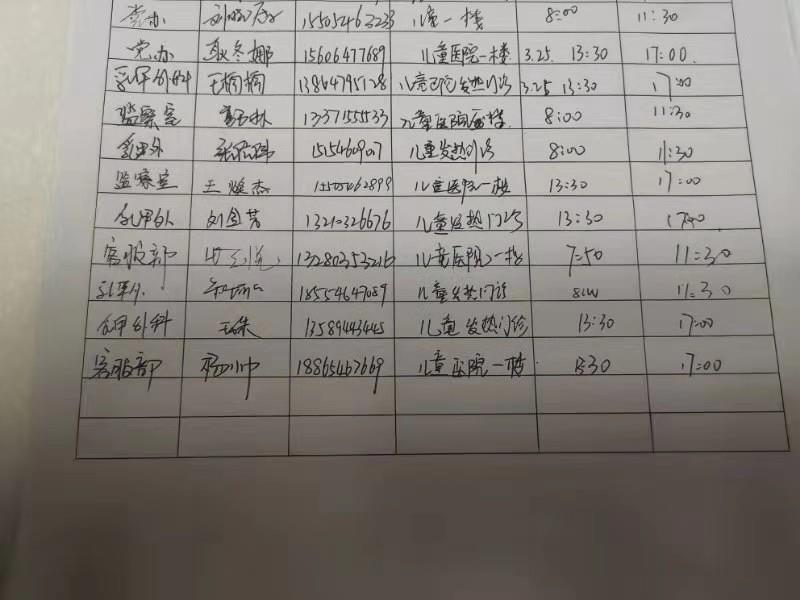 党办 15505463233 儿童一楼 8:00 11:30
党办 耿冬娜 15606477689 儿童医院一楼 3.25. 13:30 17:00.
乳甲外科 王楠楠 13864795128 儿童医院发热门诊 3.25 13:30 17:00
监察室 13371555533 儿童医院一楼. 8:00 11:30
乳甲外 儿童发热门诊 8:00 11:30
监察室 王焕杰 儿童医院一楼 13:30 17:00
乳甲外 刘金芳 13210326676 儿童发热门诊 13:30 17:00
客服部 13280353216 儿童医院一楼 7:50 11:30
乳甲外 18554647089 儿童发热门诊 8:00 11:30
乳甲外科 王珠 13589443445 儿童发热门诊 13:30 17:00
客服部 18865467669 儿童医院一楼. 13:30 17:00